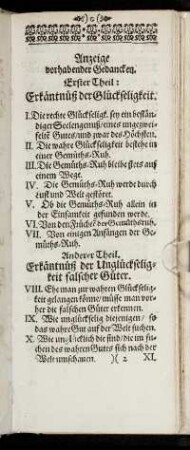 Anzeige
vorhabender Gedancken.
Erster Theil:
Erkäntnüß der Glückseligkeit.
I. Die rechte Glückseligk. sey ein bestän-
diger Seelengenuß eines ungezwei-
felten Gutes/und zwar des Höchsten.
II. Die wahre Glückseligkeit bestehe in
einer Gemüths-Ruh.
III. Die Gemüths-Ruh bleibe stets auf
einem Wege.
IV. Die Gemüths-Ruh werde durch
Lust und Welt gestöret.
V. Ob die Gemüths-Ruh allein in
der Einsamkeit gefunden werde.
VI. Von den Früchten der Gemüthsruh.
VII. Von einigen Anfängen der Ge-
müths-Ruh.
Anderer Theil.
Erkäntnüß der Unglückselig-
keit falscher Güter.
VIII. Ehe man zur wahren Glückselig-
keit gelangen könne/ müsse man vor-
her die falschen Güter erkennen.
IX. Wie unglückselig diejenigen/ so
das wahre Gut auf der Welt suchen.
X. Wie unglücklich die sind/die im su-
chen des wahren Gutes sich nach der
Welt umschauen. )( 2 XI.